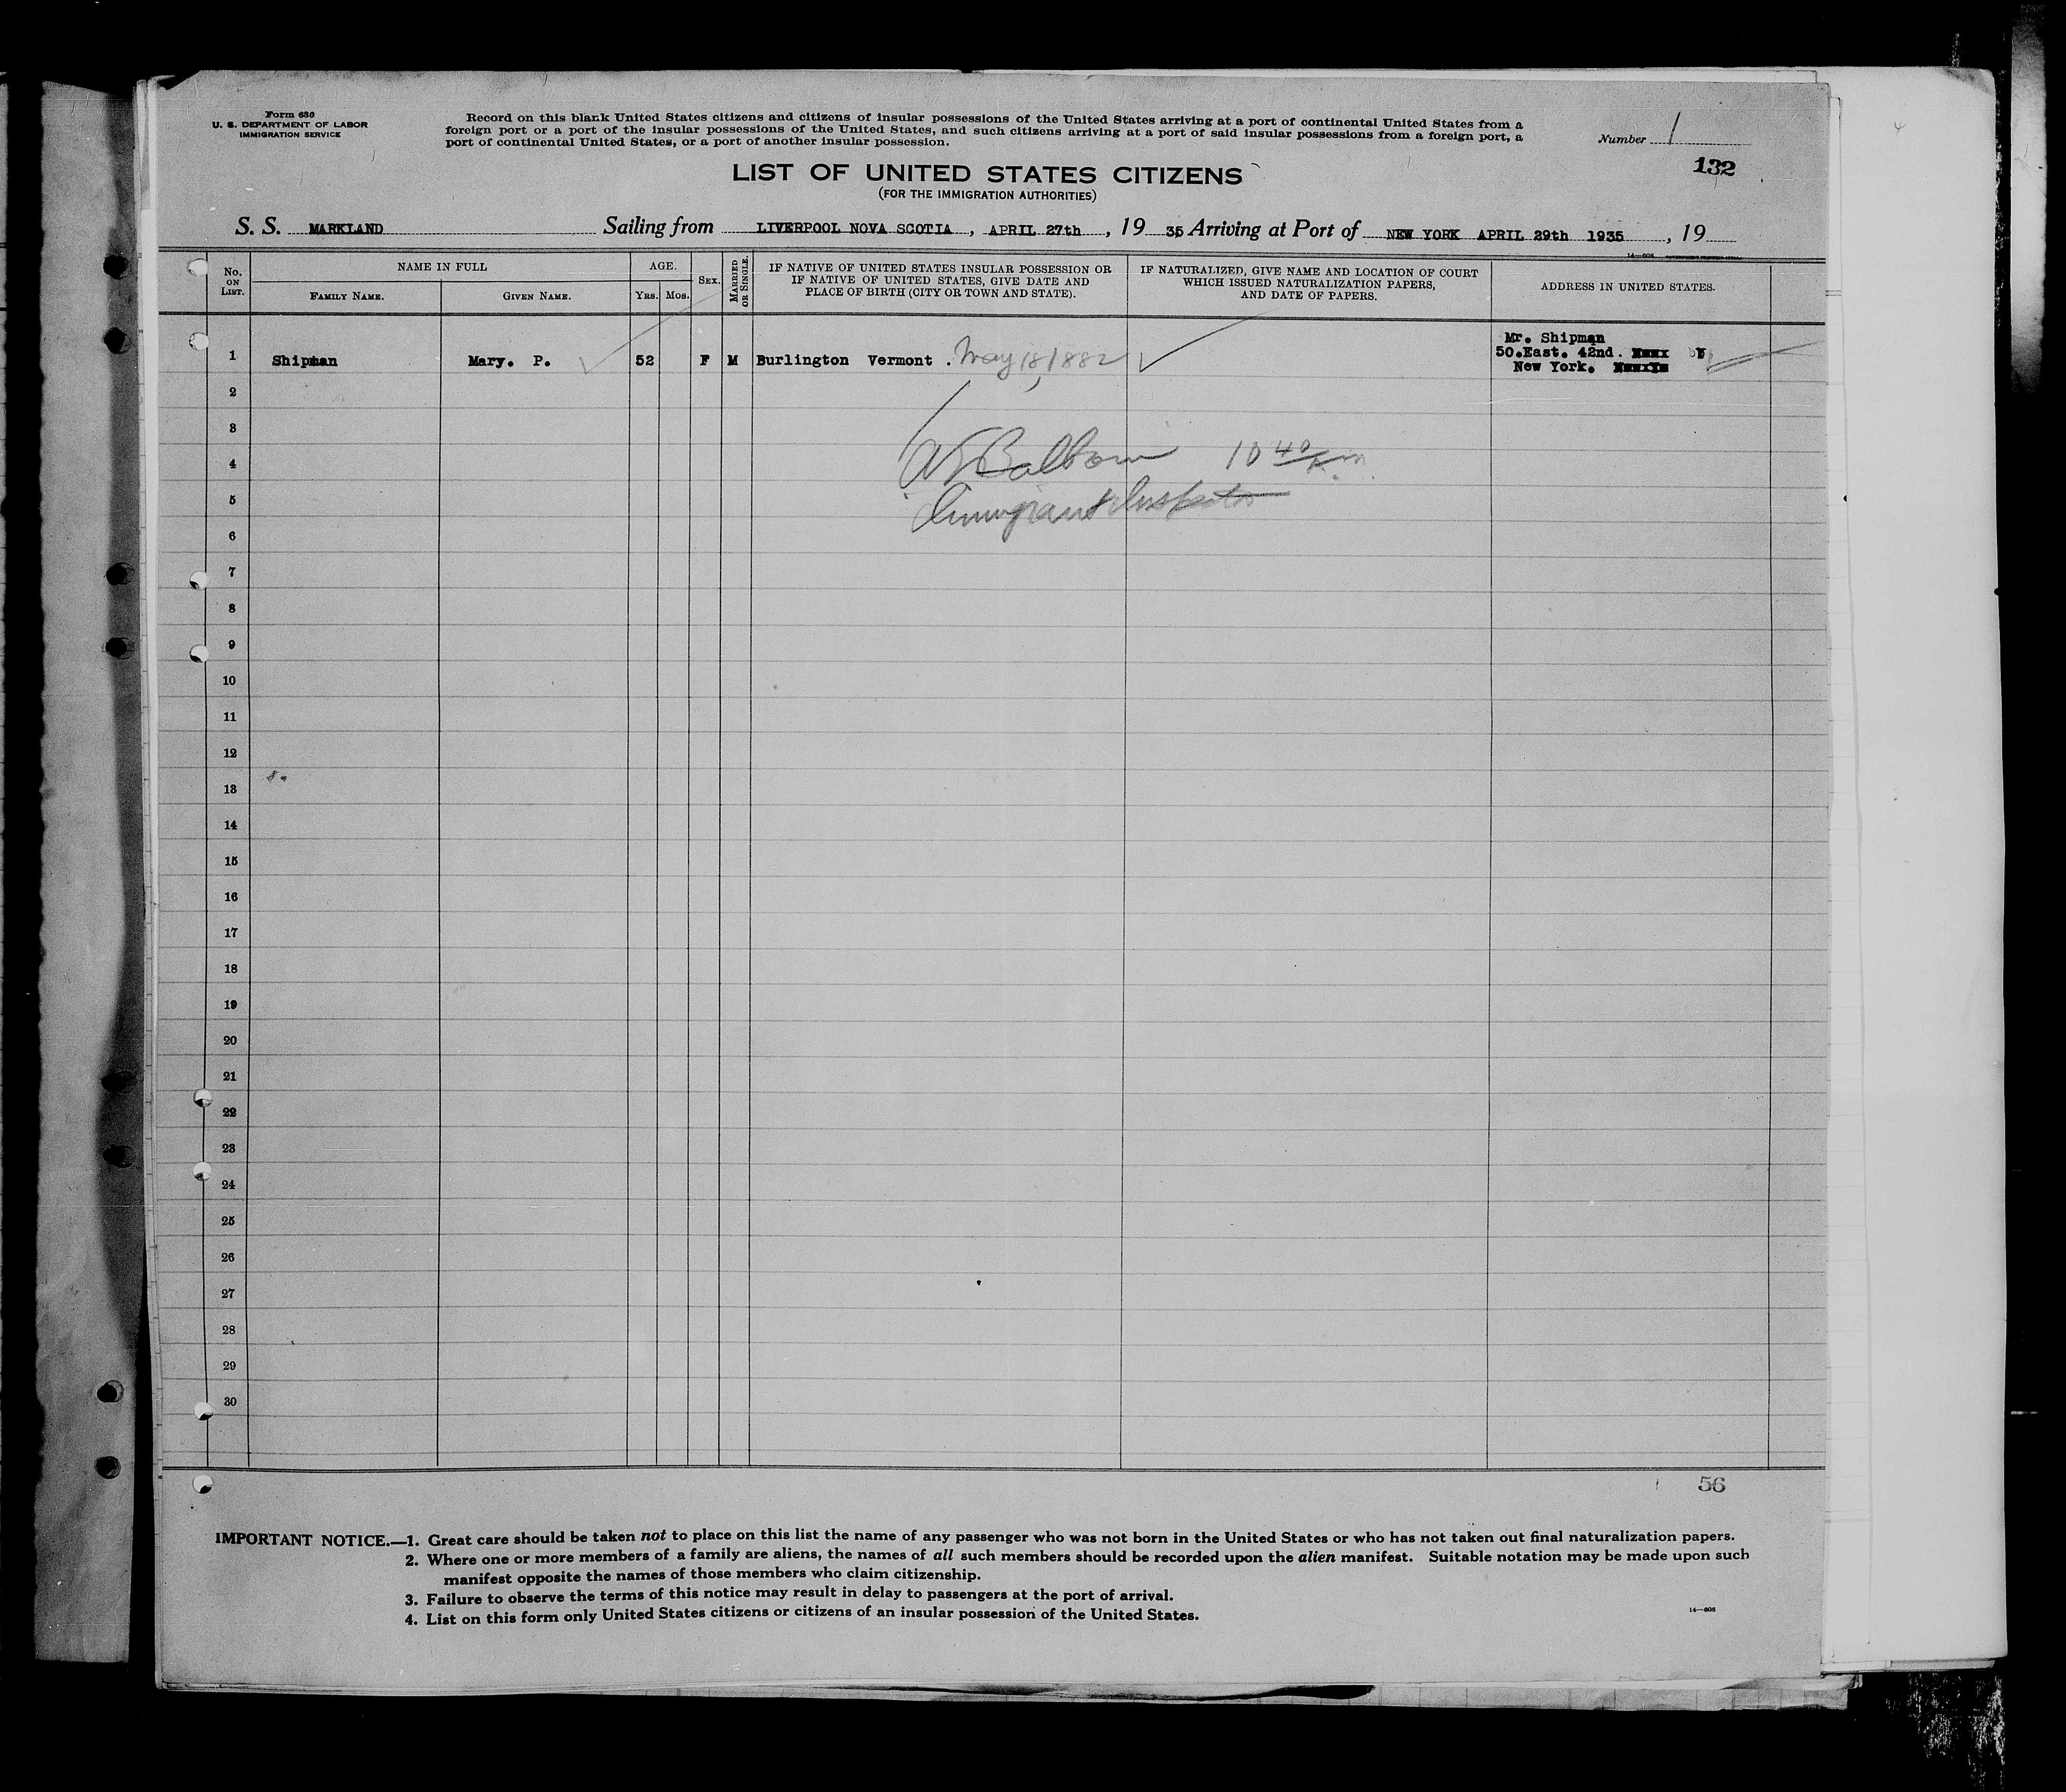 Form 630
U. S. DEPARTMENT OF LABOR
IMMIGRATION SERVICE
Record on this blank United States citizens and citizens of insular possessions of the United States arriving at a port of continental United States from a
foreign port or a port of the insular possessions of the United States, and such citizens arriving at a port of said insular possessions from a foreign port, a
port of continental United States, or a port of another insular possession.
Number 1
132
LIST OF UNITED STATES CITIZENS
(FOR THE IMMIGRATION AUTHORITIES)
S. S. MARKLAND Sailing from LIVERPOOL NOVA SCOTIA , APRIL 27th , 19 35 Arriving at Port of NEW YORK APRIL 29th 1935 , 19
14—608
No. ON LIST.
NAME IN FULL
FAMILY NAME.
GIVEN NAME.
AGE.
YRS. MOS.
SEX.
MARRIED OR SINGLE.
IF NATIVE OF UNITED STATES INSULAR POSSESSION OR
IF NATIVE OF UNITED STATES, GIVE DATE AND
PLACE OF BIRTH (CITY OR TOWN AND STATE).
IF NATURALIZED, GIVE NAME AND LOCATION OF COURT
WHICH ISSUED NATURALIZATION PAPERS,
AND DATE OF PAPERS.
ADDRESS IN UNITED STATES.
1 Shipman Mary. P. 52 F M Burlington Vermont . May 18, 1882
Mr. Shipman
50.East. 42nd.
New York.
2
3
4
10 40
5
Immigrant Inspector
6
7
8
9
10
11
12
13
14
15
16
17
18
19
20
21
22
23
24
25
26
27
28
29
30
56
IMPORTANT NOTICE.—1. Great care should be taken not to place on this list the name of any passenger who was not born in the United States or who has not taken out final naturalization papers.
2. Where one or more members of a family are aliens, the names of all such members should be recorded upon the alien manifest. Suitable notation may be made upon such
manifest opposite the names of those members who claim citizenship.
3. Failure to observe the terms of this notice may result in delay to passengers at the port of arrival.
4. List on this form only United States citizens or citizens of an insular possession of the United States.
14—608